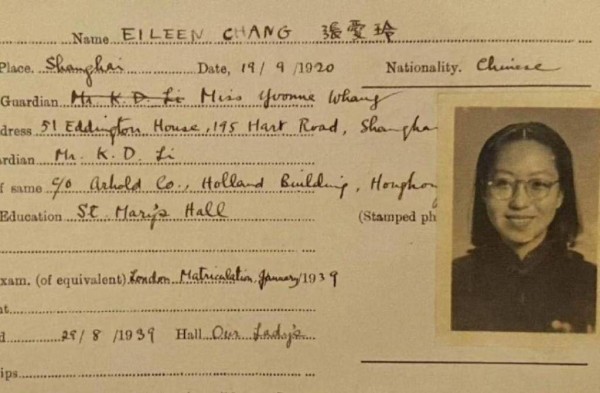 Name EILEEN CHANG 張愛玲
Place. Shanghai Date, 19/9/1920 Nationality. Chinese
Guardian Mr. K. D. Li Miss Yvonne Whang
dress 51 Eddington House, 195 Hart Road, Shangha
ardian Mr. K. D. Li
f same c/o Arnhold Co., Holland Building, Hongkong
Education St. Mary's Hall (Stamped ph
xam. (of equivalent) London Matriculation, January/1939
nt
d 29/8/1939 Hall Our Lady's
ips